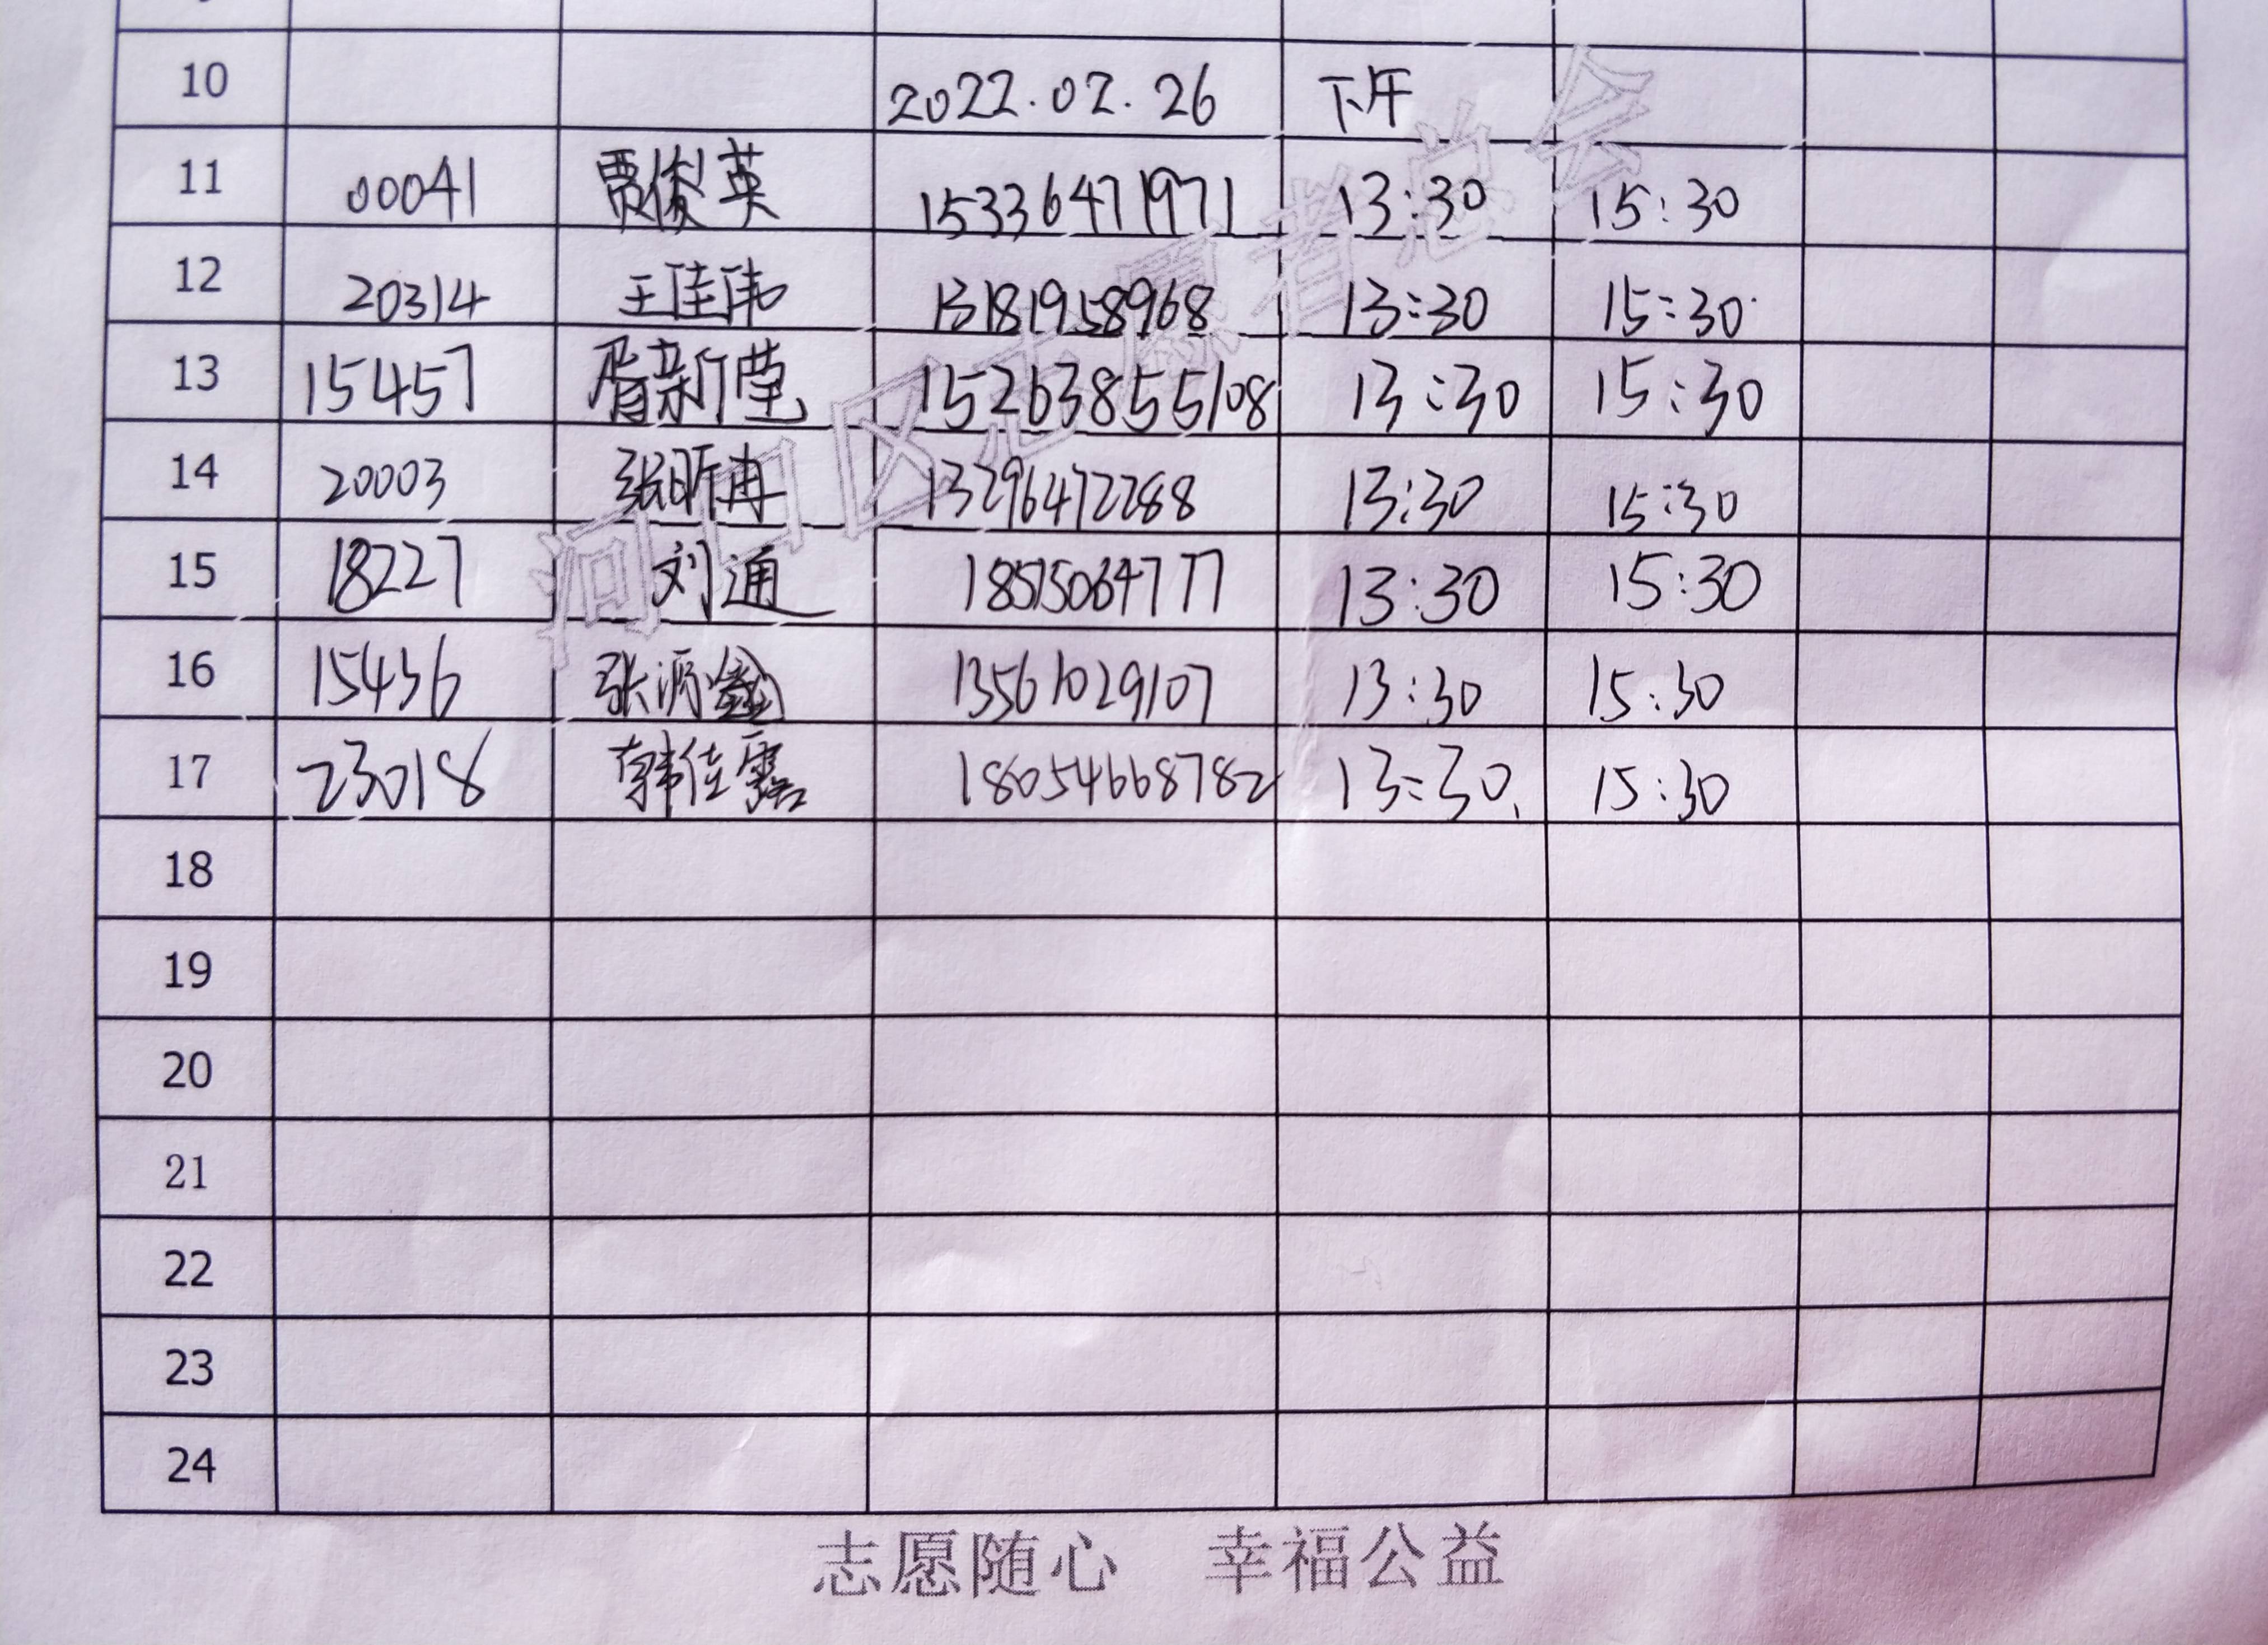 10 2022.02.26 下午
11 00041 贾俊英 15336471971 13:30 15:30
12 20314 王佳伟 13181958968 13:30 15:30
13 15457 胥新莹 15263855108 13:30 15:30
14 20003 张昕冉 13296472288 13:30 15:30
15 18227 刘通 13:30 15:30
16 15436 张源鑫 13561029107 13:30 15:30
17 23018 韩佳露 18054668782 13:30 15:30
18
19
20
21
22
23
24
河口区志愿者总会
志愿随心 幸福公益